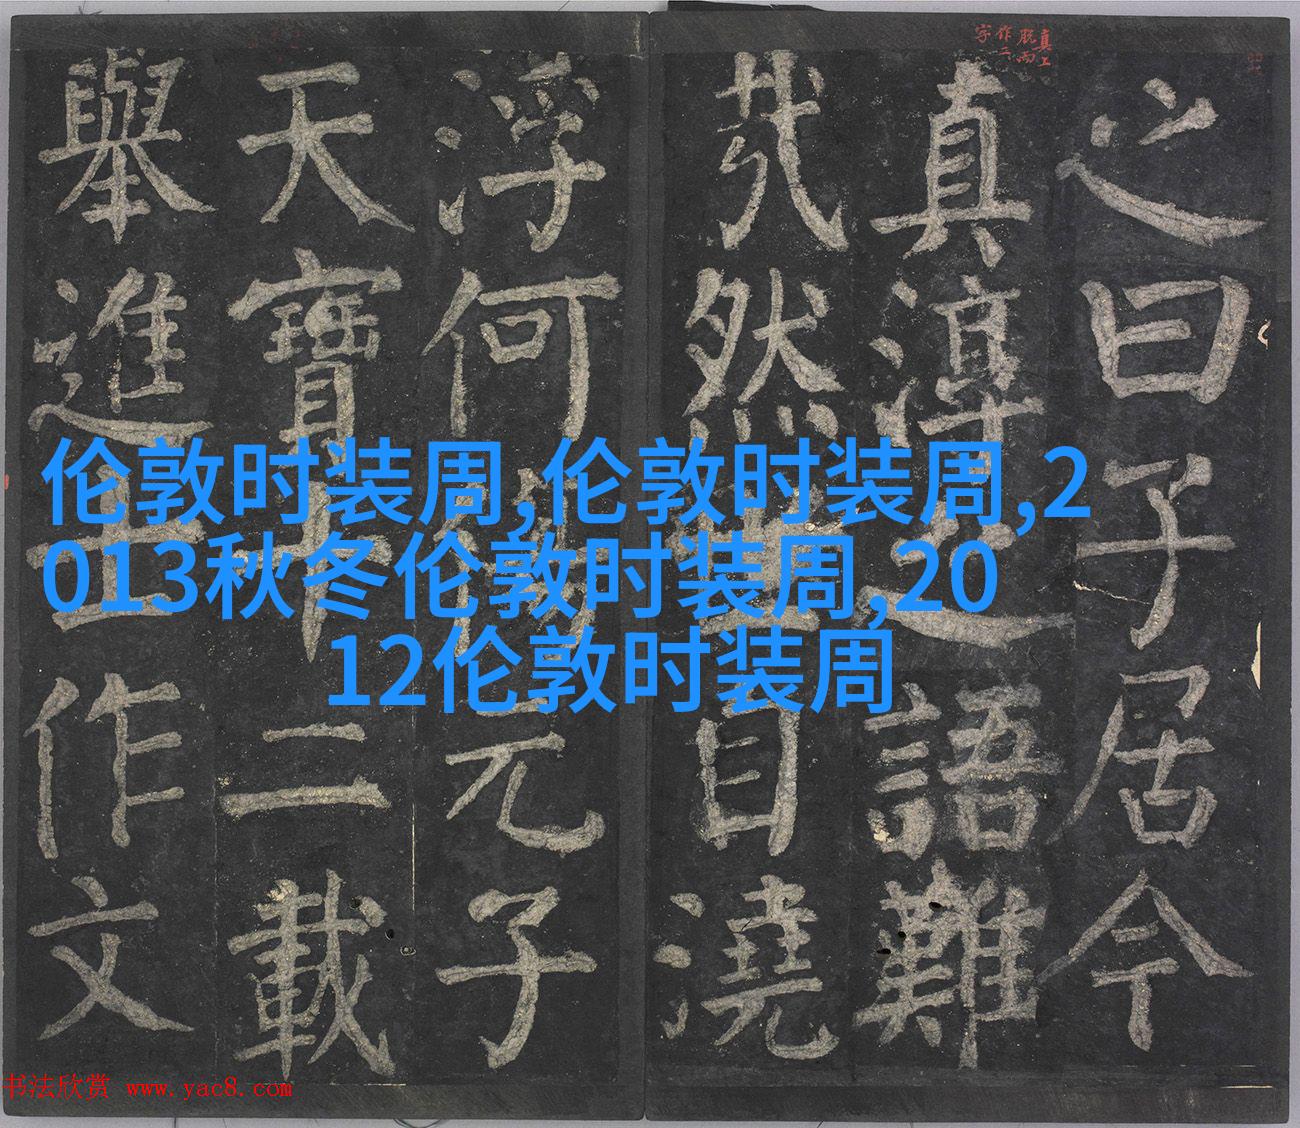 真上
脫而
作二
字
之曰子居今
真淳之語難
哉然世自澆
浮何傷元子
天寶十二載
舉進士作文
伦敦时装周,伦敦时装周,2
013秋冬伦敦时装周,20
12伦敦时装周
书法欣赏 www.yac8.com